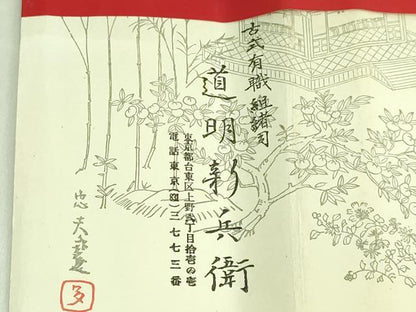 古式有職組諸司
道明新兵衛
東京都台東区上野弐丁目拾壱の壱
電話東京三七七三番
忠夫